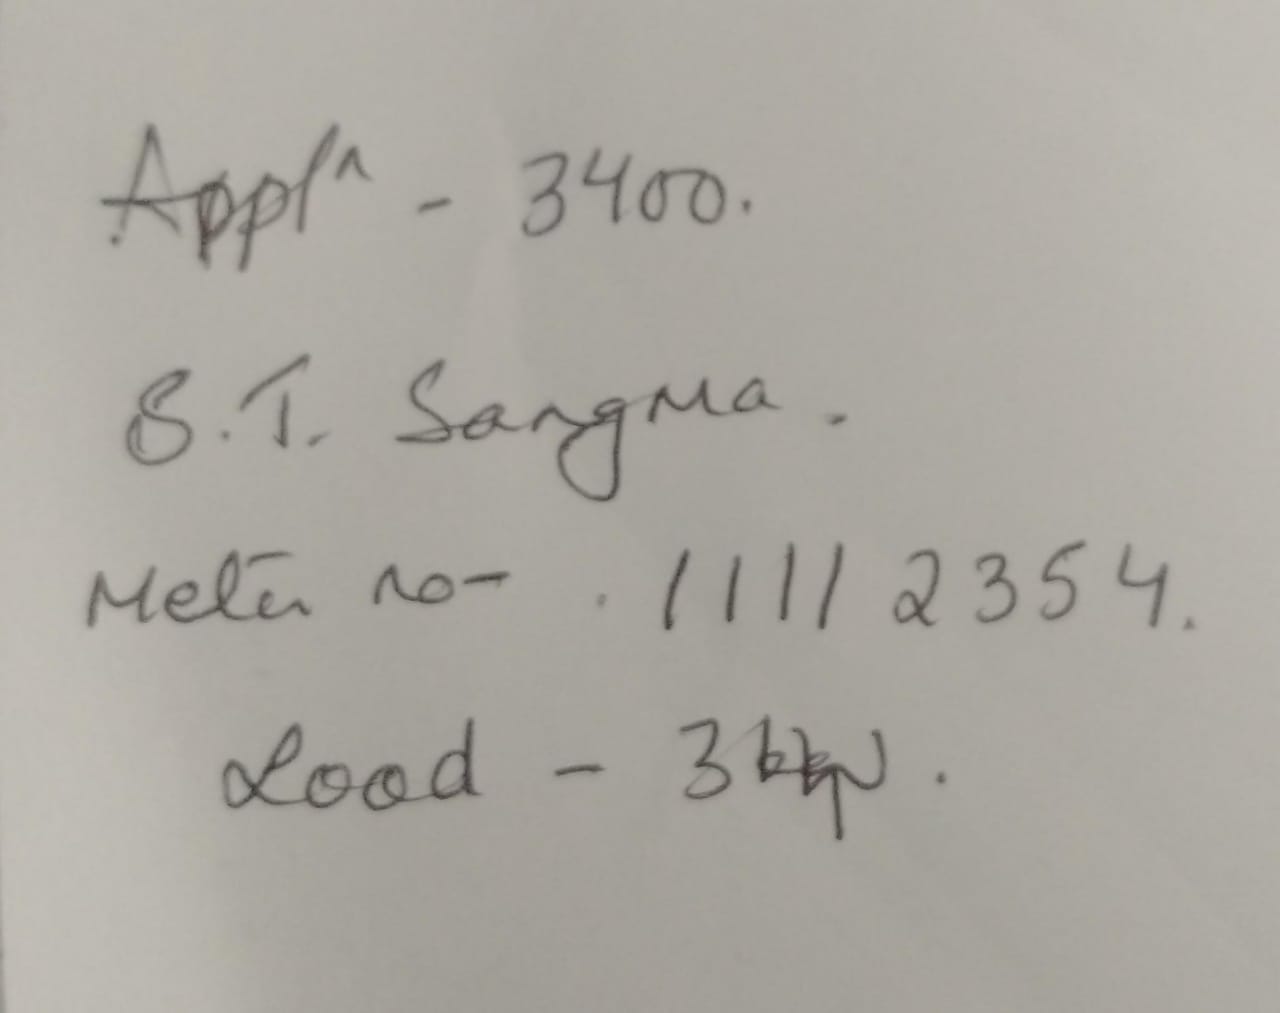 Appl^n - 3400.
S.T. Sangma.
Meter no- . 11112354.
Load - 3 kW.